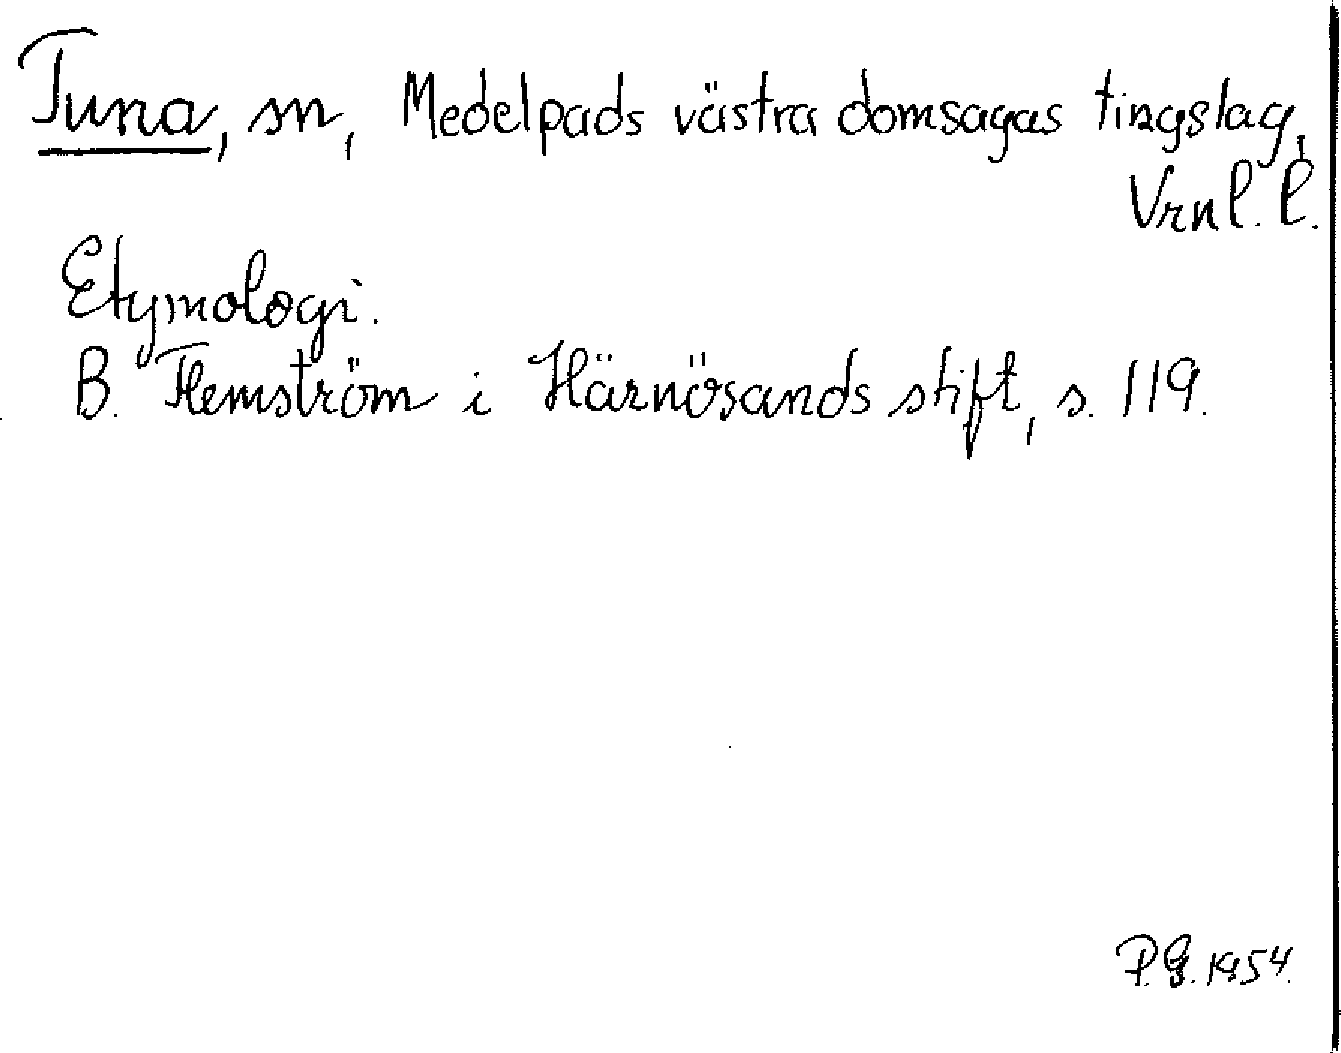 Tuna, sn, Medelpads västra domsagas tingslag,
Vrnl. l.
Etymologi.
B. Flemström i Härnösands stift, s. 119.
P.G. 1954.